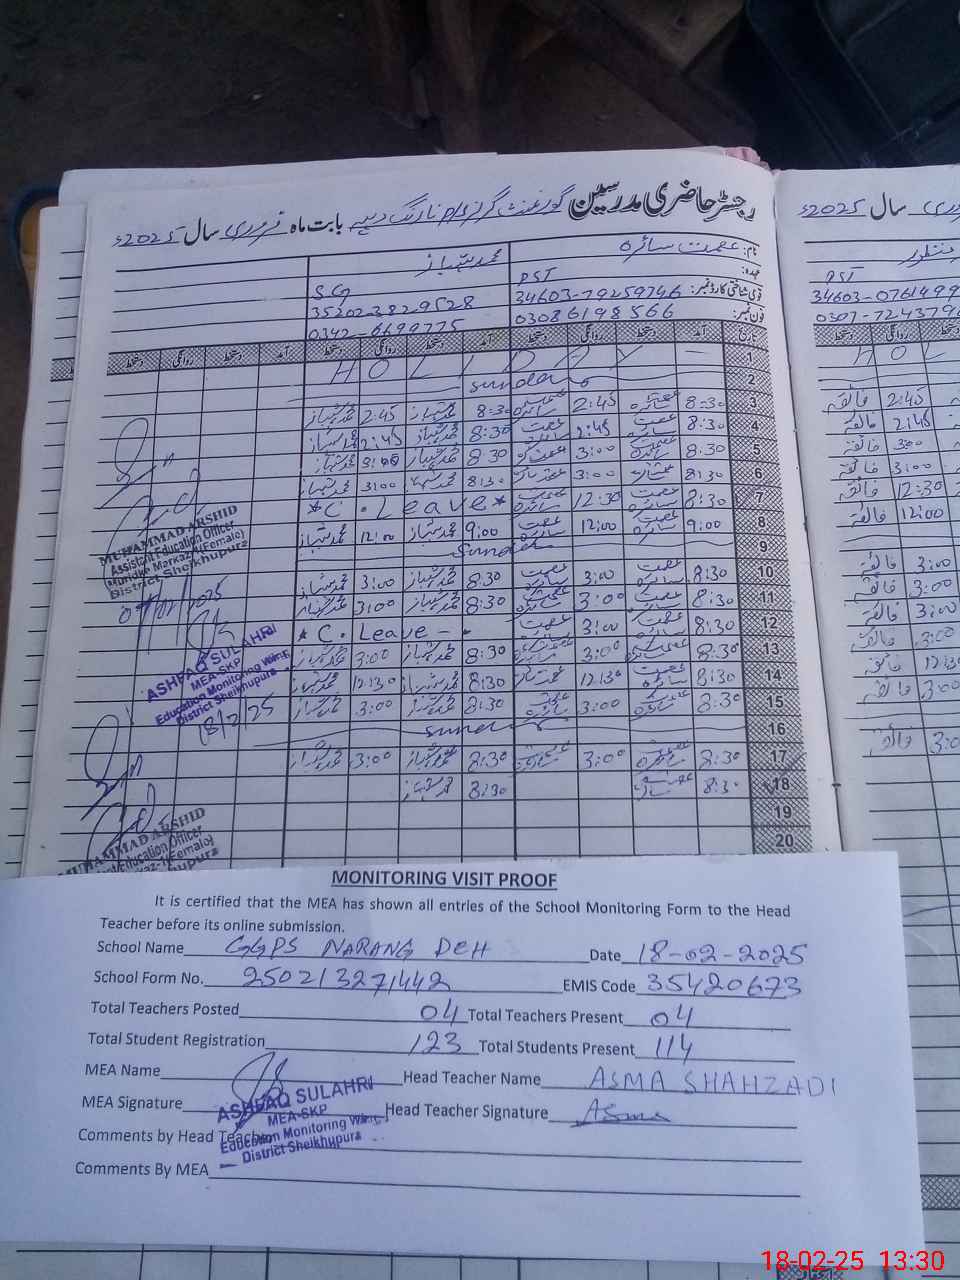 رجسٹر حاضری مدرسین گورنمنٹ گرلز P/S نارنگ دیہہ بابت ماہ فروری سال 2025ء
سال 2025ء
نام: عصمت سائرہ محمد شہباز
عہدہ: PST S.G
PST
قومی شناختی کارڈ نمبر: 34603-79259746 35202-3829528
34603-0761499
فون نمبر: 03086198566 0342-6699775
0307-724379
تاریخ آمد دستخط روانگی دستخط آمد دستخط روانگی دستخط آمد دستخط روانگی دستخط
1 HOLIDAY
HOL
2 Sunday
3 8:30 عصمت سائرہ 2:45 عصمت سائرہ 8:30 محمد شہباز 2:45 محمد شہباز
2:45 فائقہ
4 8:30 عصمت سائرہ 2:45 عصمت سائرہ 8:30 محمد شہباز 2:45 محمد شہباز
2:45 فائقہ
5 8:30 عصمت سائرہ 3:00 عصمت سائرہ 8:30 محمد شہباز 3:00 محمد شہباز
3:00 فائقہ
6 8:30 عصمت سائرہ 3:00 عصمت سائرہ 8:30 محمد شہباز 3:00 محمد شہباز
3:00 فائقہ
7 8:30 عصمت سائرہ 12:30 عصمت سائرہ *C. Leave*
12:30 فائقہ
8 9:00 عصمت سائرہ 12:00 عصمت سائرہ 9:00 محمد شہباز 12:00 محمد شہباز
12:00 فائقہ
9 Sunday
10 8:30 عصمت سائرہ 3:00 عصمت سائرہ 8:30 محمد شہباز 3:00 محمد شہباز
3:00 فائقہ
11 8:30 عصمت سائرہ 3:00 عصمت سائرہ 8:30 محمد شہباز 3:00 محمد شہباز
3:00 فائقہ
12 8:30 عصمت سائرہ 3:00 عصمت سائرہ * C. Leave -
3:00 فائقہ
13 8:30 عصمت سائرہ 3:00 عصمت سائرہ 8:30 محمد شہباز 3:00 محمد شہباز
3:00 فائقہ
14 8:30 عصمت سائرہ 12:30 عصمت سائرہ 8:30 محمد شہباز 12:30 محمد شہباز
12:30 فائقہ
15 8:30 عصمت سائرہ 3:00 عصمت سائرہ 8:30 محمد شہباز 3:00 محمد شہباز
3:00 فائقہ
16 Sunday
17 8:30 عصمت سائرہ 3:00 عصمت سائرہ 8:30 محمد شہباز 3:00 محمد شہباز
3:00 فائقہ
18 8:30 عصمت سائرہ 8:30 محمد شہباز
19
20
MUHAMMAD ARSHID
Assistant Education Officer
Muridke Markaz-1(Female)
District Sheikhupura
ASHFAQ SULAHRI
MEA-SKP
Education Monitoring Wing
District Sheikhupura
18/2/25
MUHAMMAD ARSHID
Education Officer
MONITORING VISIT PROOF
It is certified that the MEA has shown all entries of the School Monitoring Form to the Head
Teacher before its online submission.
School Name GGPS NARANG DEH Date 18-02-2025
School Form No. 250213271442 EMIS Code 35420673
Total Teachers Posted 04 Total Teachers Present 04
Total Student Registration 123 Total Students Present 114
MEA Name Head Teacher Name ASMA SHAHZADI
MEA Signature Head Teacher Signature Asma
ASHFAQ SULAHRI
MEA-SKP
Education Monitoring Wing
District Sheikhupura
Comments by Head Teacher
Comments By MEA
18-02-25 13:30